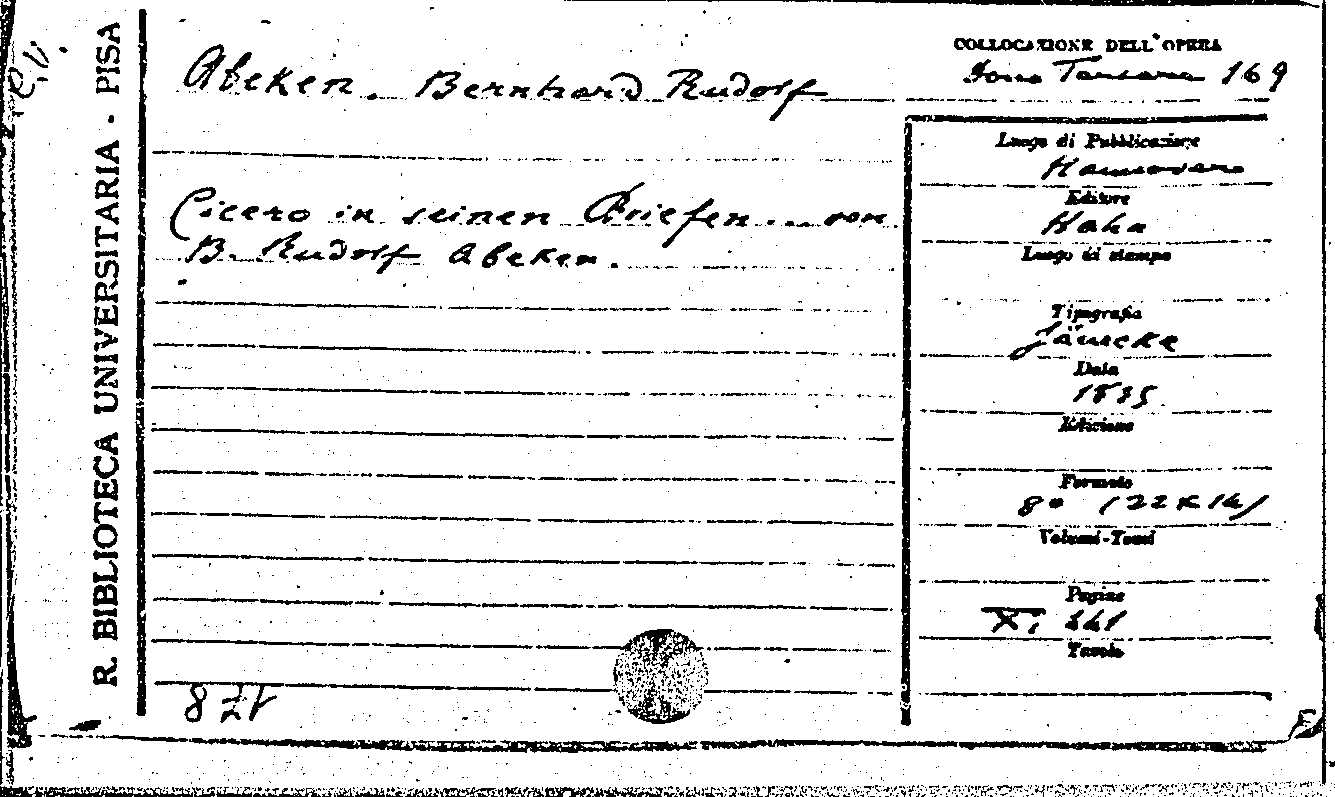 R. BIBLIOTECA UNIVERSITARIA - PISA
Abeken. Bernhard Rudolf
Cicero in seinen Briefen... von
B. Rudolf Abeken.
COLLOCAZIONE DELL'OPERA
169
Luogo di Pubblicazione
Hannover
Editore
Hahn
Luogo di stampa
Tipografia
Jänecke
Data
1835
Edizione
Formato
8° (22x14)
Volumi-Tomi
Pagine
Tavole